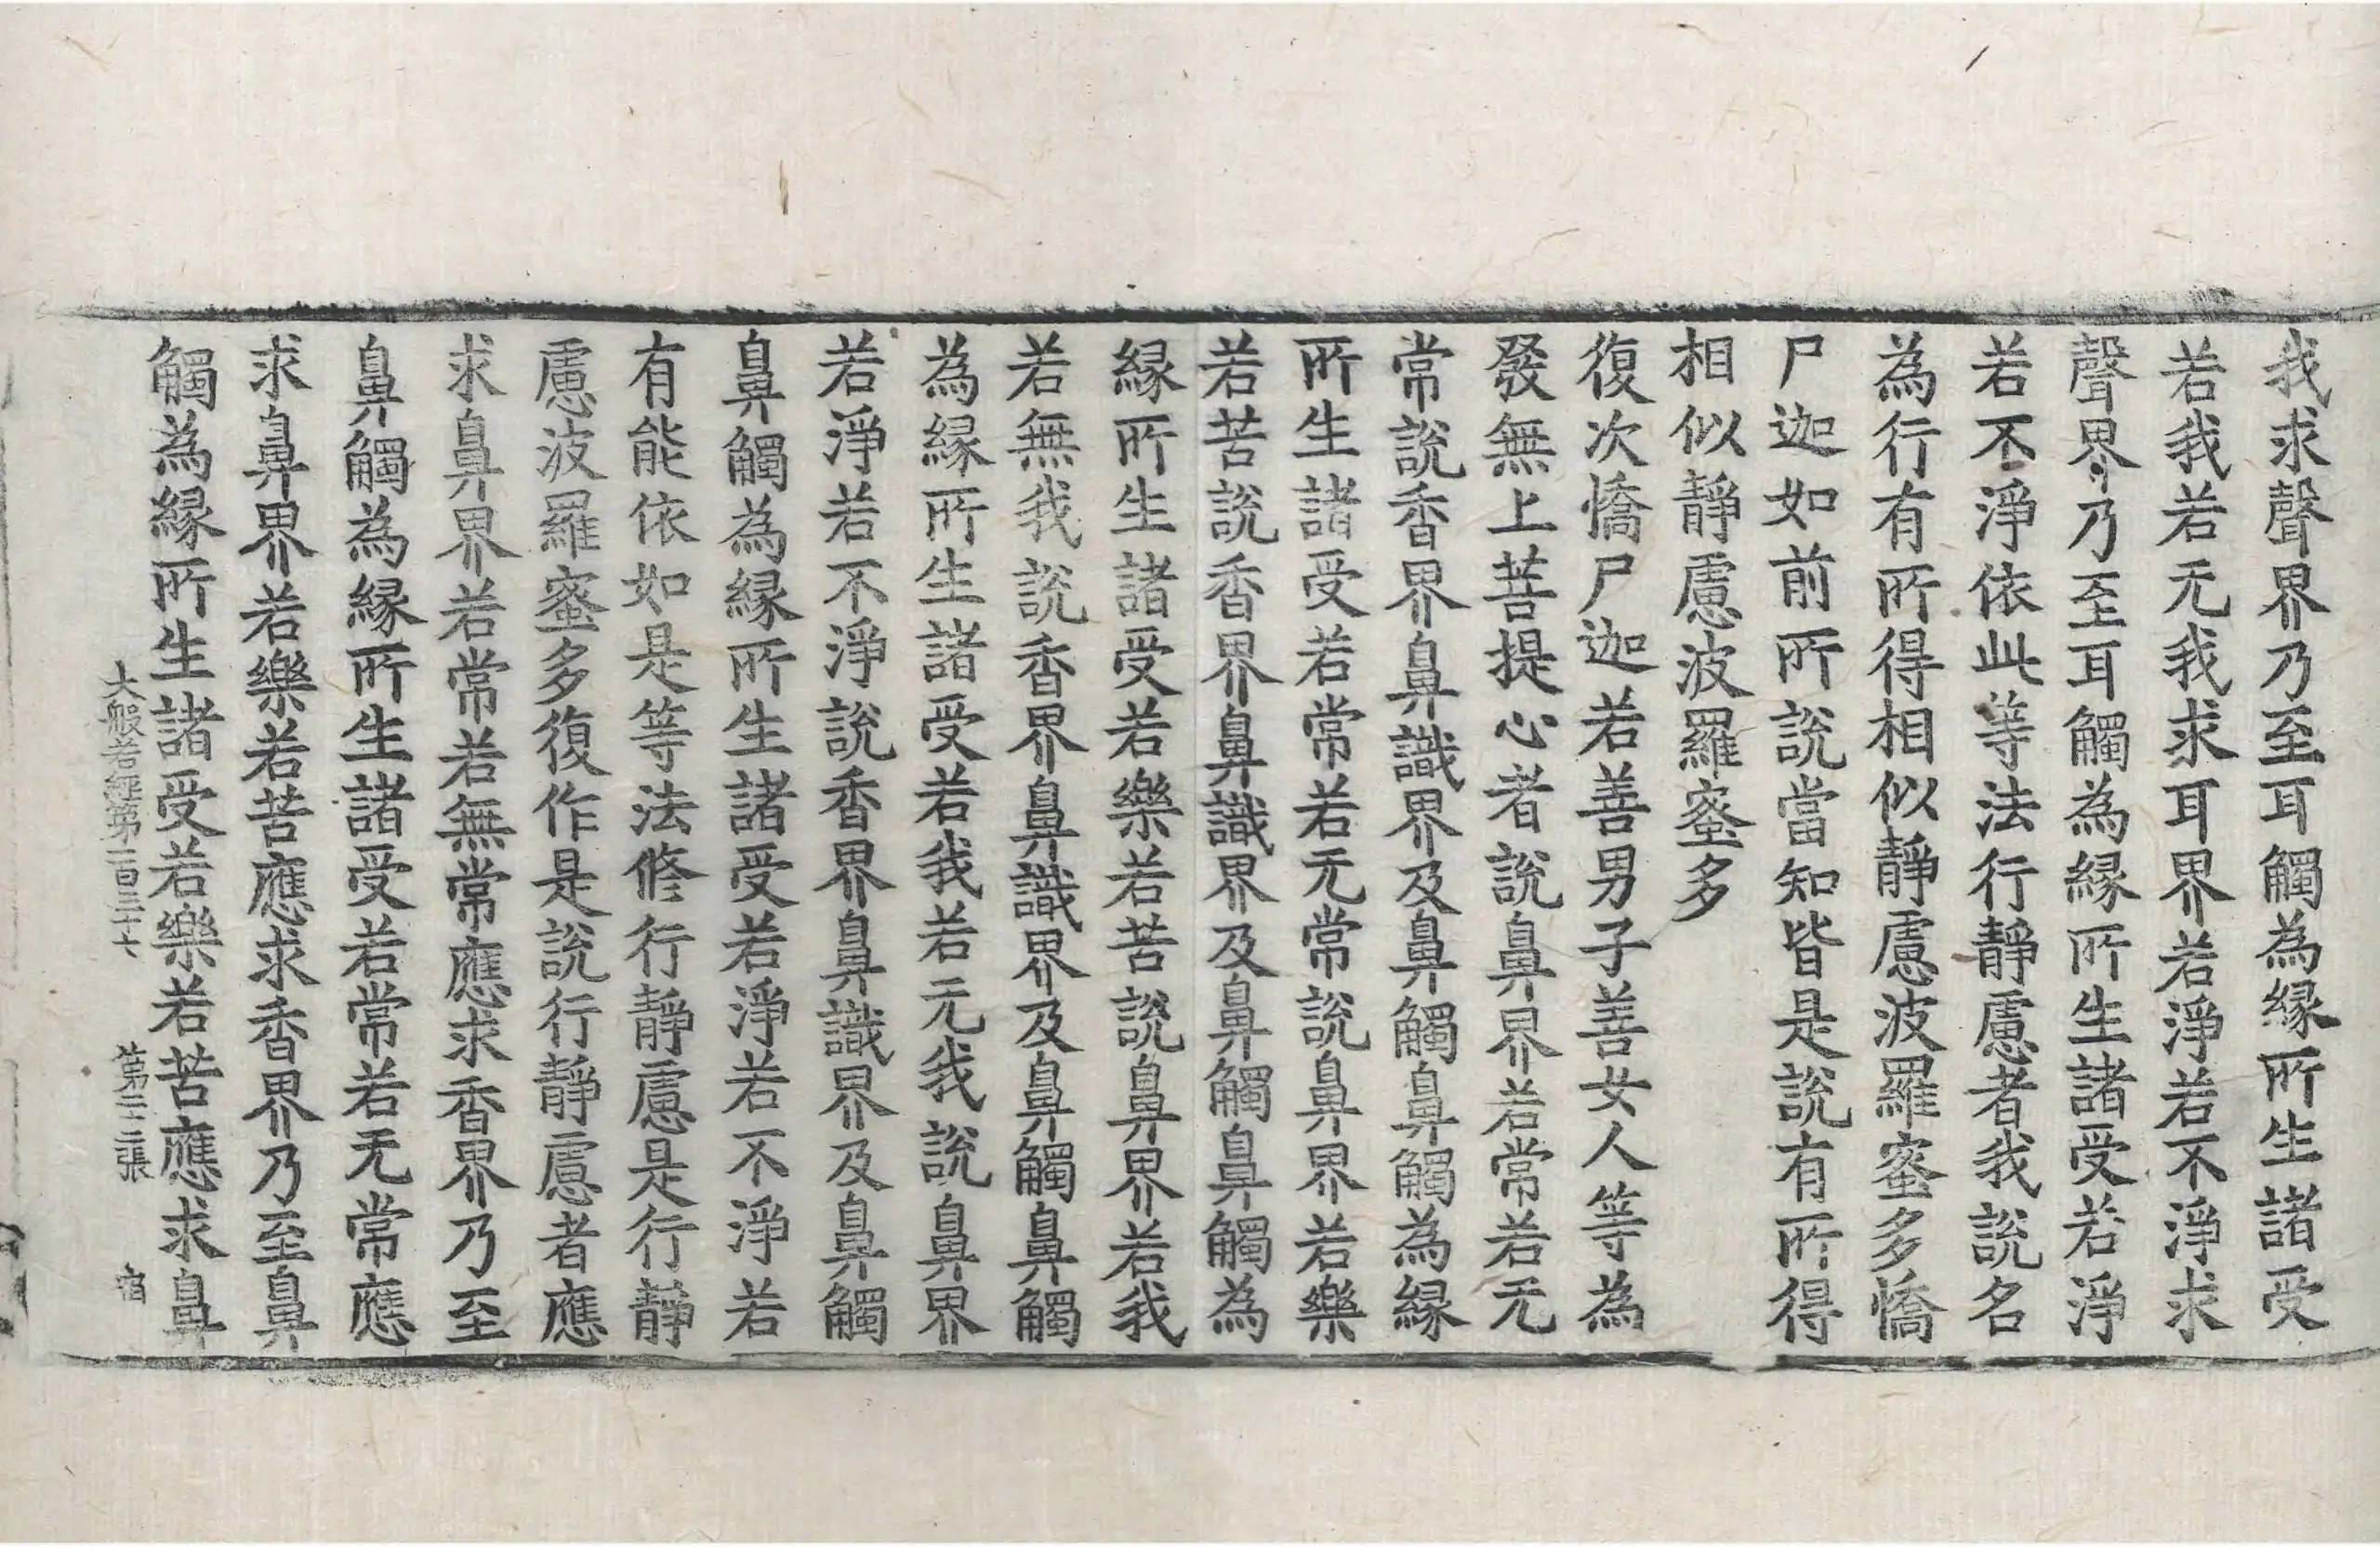 我求聲界乃至耳觸為縁所生諸受
若我若无我求耳界若淨若不淨求
聲界乃至耳觸為縁所生諸受若淨
若不淨依此等法行靜慮者我說名
為行有所得相似靜慮波羅蜜多憍
尸迦如前所說當知皆是說有所得
相似靜慮波羅蜜多
復次憍尸迦若善男子善女人等為
發無上菩提心者說鼻界若常若无
常說香界鼻識界及鼻觸鼻觸為縁
所生諸受若常若无常說鼻界若樂
若苦說香界鼻識界及鼻觸鼻觸為
縁所生諸受若樂若苦說鼻界若我
若無我說香界鼻識界及鼻觸鼻觸
為縁所生諸受若我若无我說鼻界
若淨若不淨說香界鼻識界及鼻觸
鼻觸為縁所生諸受若淨若不淨若
有能依如是等法修行靜慮是行靜
慮波羅蜜多復作是說行靜慮者應
求鼻界若常若無常應求香界乃至
鼻觸為縁所生諸受若常若无常應
求鼻界若樂若苦應求香界乃至鼻
觸為縁所生諸受若樂若苦應求鼻
大般若經第一百三十七 第二十二張 宿